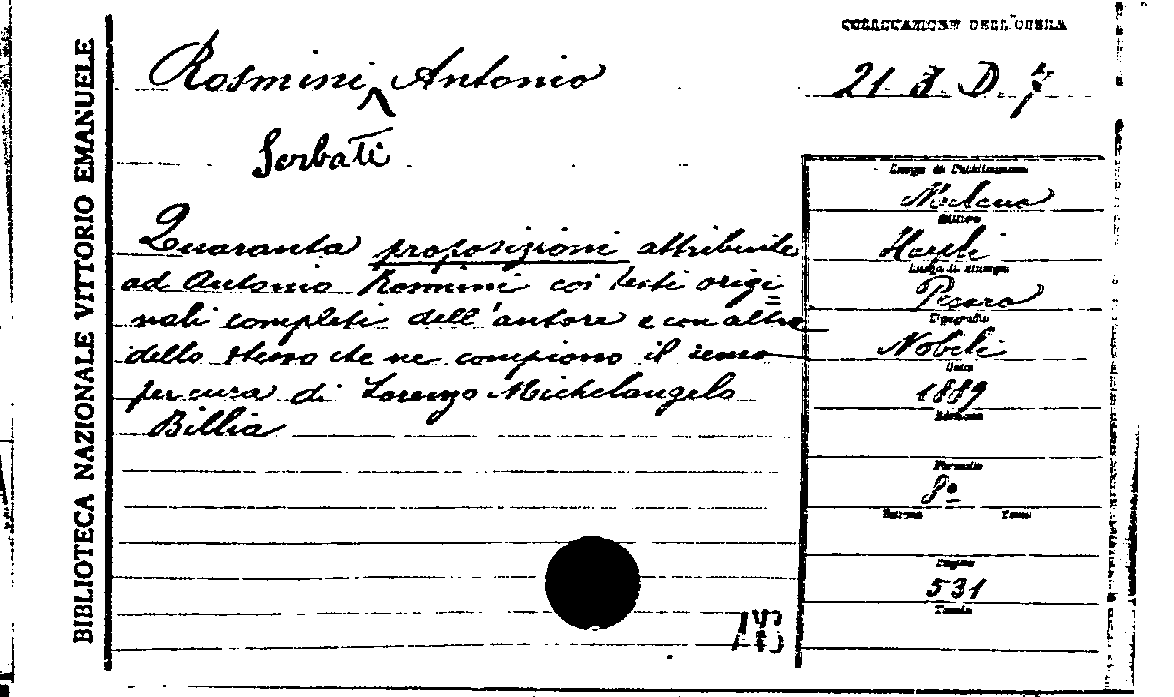 BIBLIOTECA NAZIONALE VITTORIO EMANUELE
COLLOCAZIONE DELL'OPERA
21 3. D. 7
Rosmini Antonio
Serbati
Quaranta proposizioni attribuite
ad Antonio Rosmini coi testi origi
nali completi dell'autore e con altre
dello stesso che ne compiono il senso
per cura di Lorenzo Michelangelo
Billia
Luogo di Pubblicazione
Milano
Editore
Hoepli
Luogo di stampa
Pesaro
Tipografia
Nobili
Data
1889
Formato
8º
Pagine
531
Tavole